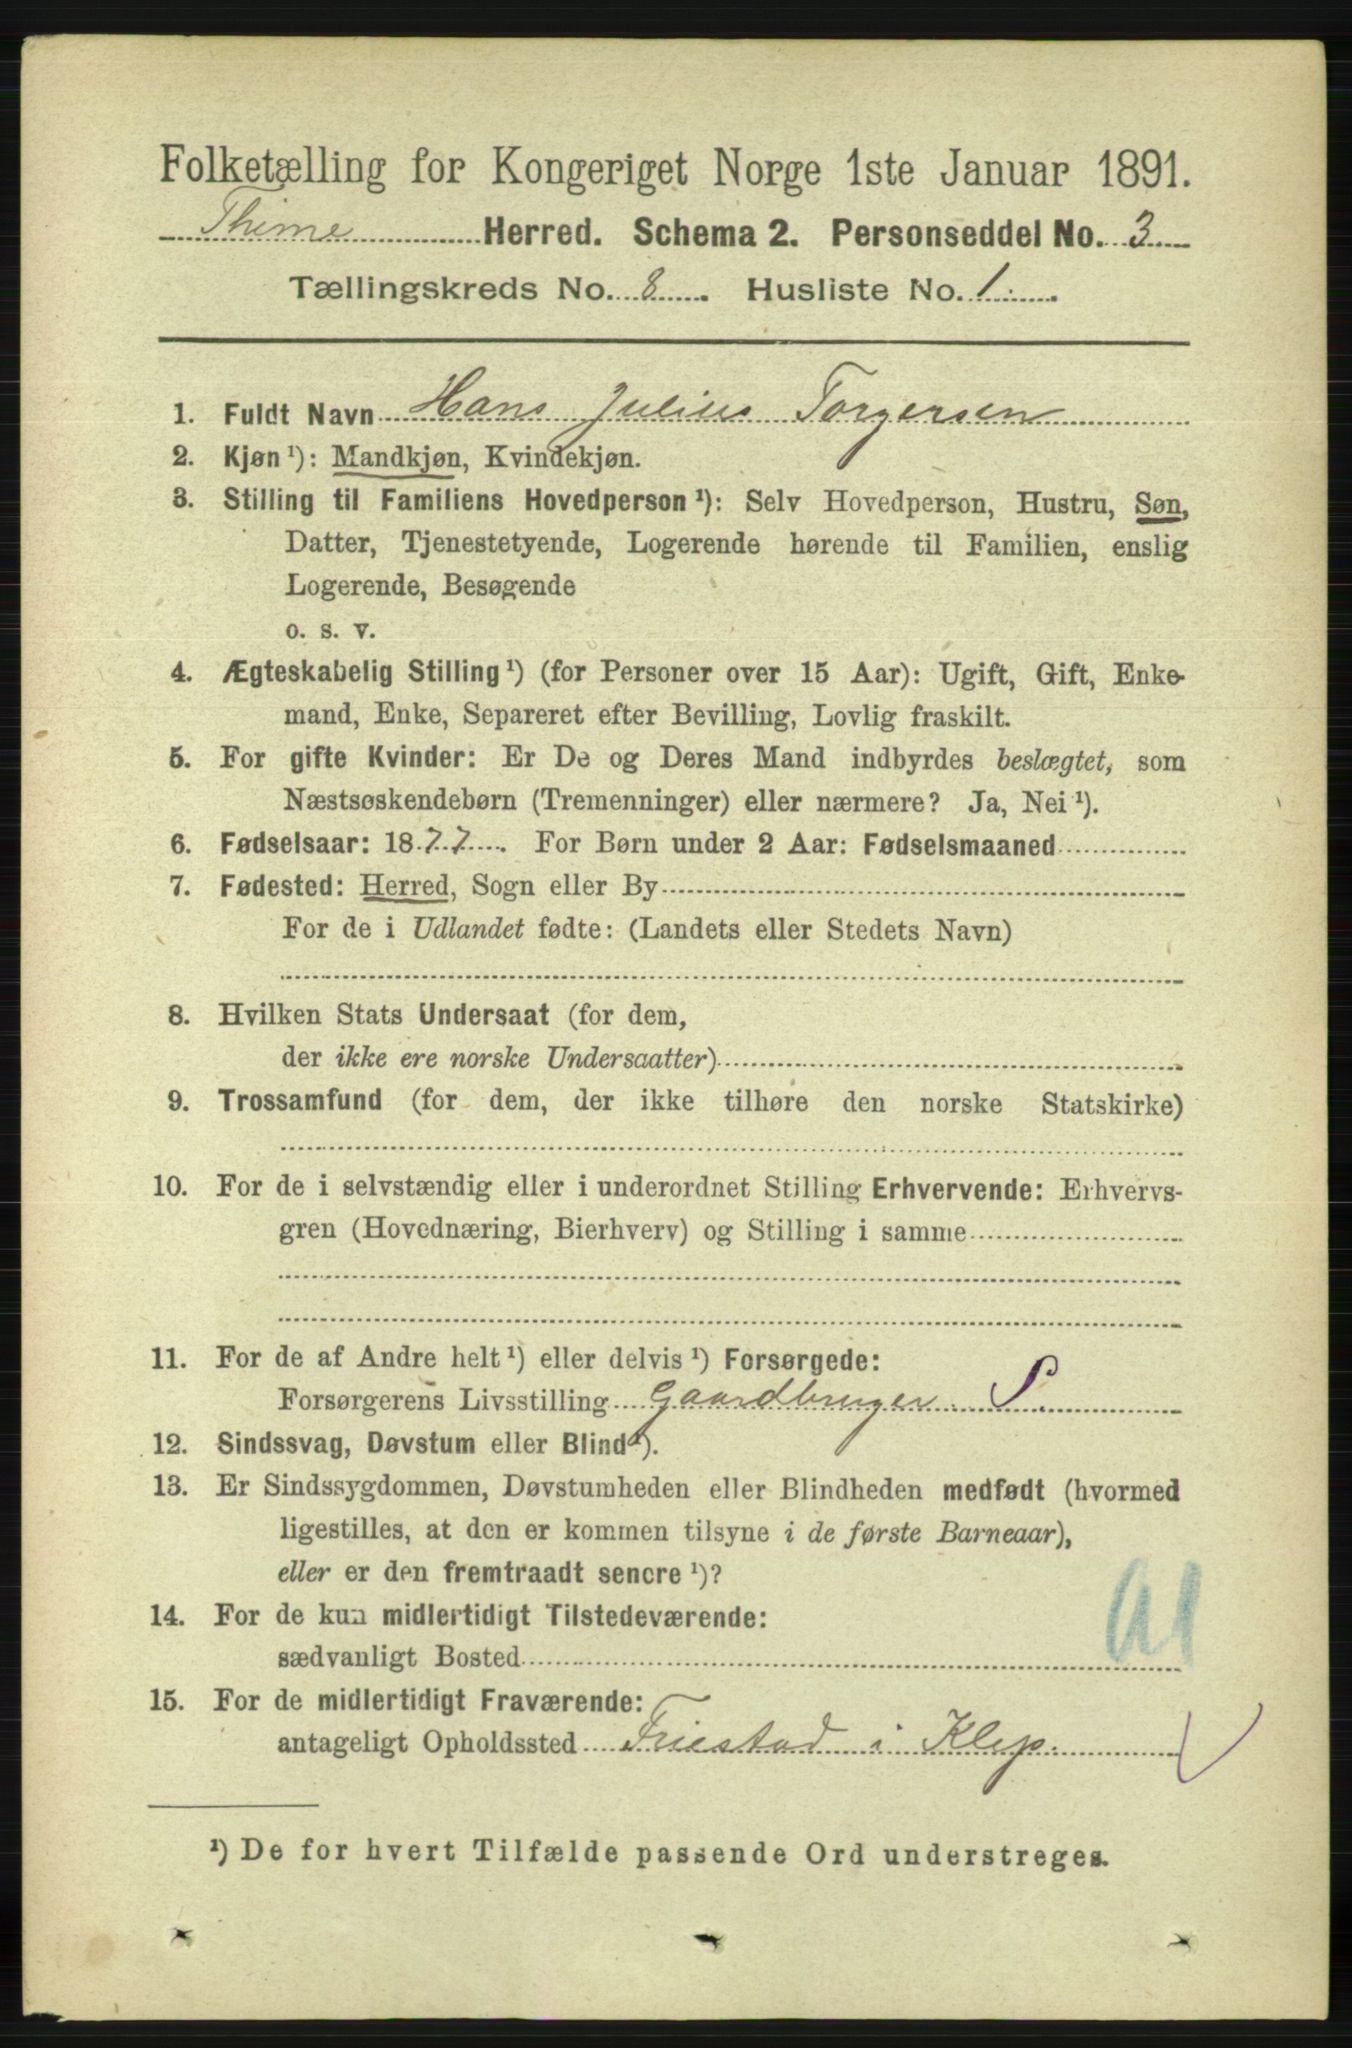 Folketælling for Kongeriget Norge 1ste Januar 1891.
Thime Herred. Schema 2. Personseddel No. 3
Tællingskreds No. 8. Husliste No. 1.
1. Fuldt Navn Hans Julius Torgersen
2. Kjøn ¹): Mandkjøn, Kvindekjøn.
3. Stilling til Familiens Hovedperson ¹): Selv Hovedperson, Hustru, Søn,
Datter, Tjenestetyende, Logerende hørende til Familien, enslig
Logerende, Besøgende
o. s. v.
4. Ægteskabelig Stilling ¹) (for Personer over 15 Aar): Ugift, Gift, Enke-
mand, Enke, Separeret efter Bevilling, Lovlig fraskilt.
5. For gifte Kvinder: Er De og Deres Mand indbyrdes beslægtet, som
Næstsøskendebørn (Tremenninger) eller nærmere? Ja, Nei ¹).
6. Fødselsaar: 1877. For Børn under 2 Aar: Fødselsmaaned
7. Fødested: Herred, Sogn eller By
For de i Udlandet fødte: (Landets eller Stedets Navn)
8. Hvilken Stats Undersaat (for dem,
der ikke ere norske Undersaatter)
9. Trossamfund (for dem, der ikke tilhøre den norske Statskirke)
10. For de i selvstændig eller i underordnet Stilling Erhvervende: Erhvervs-
gren (Hovednæring, Bierhverv) og Stilling i samme
11. For de af Andre helt ¹) eller delvis ¹) Forsørgede:
Forsørgerens Livsstilling Gaardbruger. S.
12. Sindssvag, Døvstum eller Blind ¹).
13. Er Sindssygdommen, Døvstumheden eller Blindheden medfødt (hvormed
ligestilles, at den er kommen tilsyne i de første Barneaar),
eller er den fremtraadt senere ¹)?
14. For de kun midlertidigt Tilstedeværende:
sædvanligt Bosted
15. For de midlertidigt Fraværende:
antageligt Opholdssted Friestad i Klep.
¹) De for hvert Tilfælde passende Ord understreges.